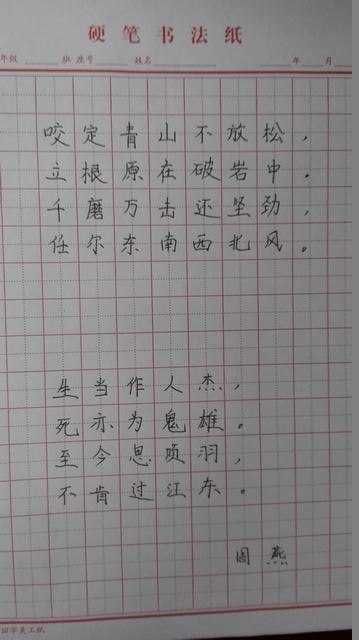 硬笔书法纸
年级 班 座号 姓名 年 月
咬定青山不放松，
立根原在破岩中．
千磨万击还坚劲，
任尔东南西北风。
生当作人杰，
死亦为鬼雄。
至今思项羽，
不肯过江东。
周燕
田字美工纸